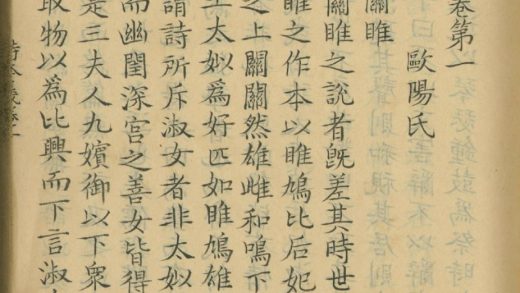 卷第一
歐陽氏
關雎
關雎之說者旣差其時世
雎之作本以雎鳩比后妃
之上關關然雄雌和鳴下
王太姒為好匹如雎鳩雄
謂詩所斥淑女者非太姒
而幽閨深宮之善女皆得
是三夫人九嬪御以下衆
取物以為比興而下言淑